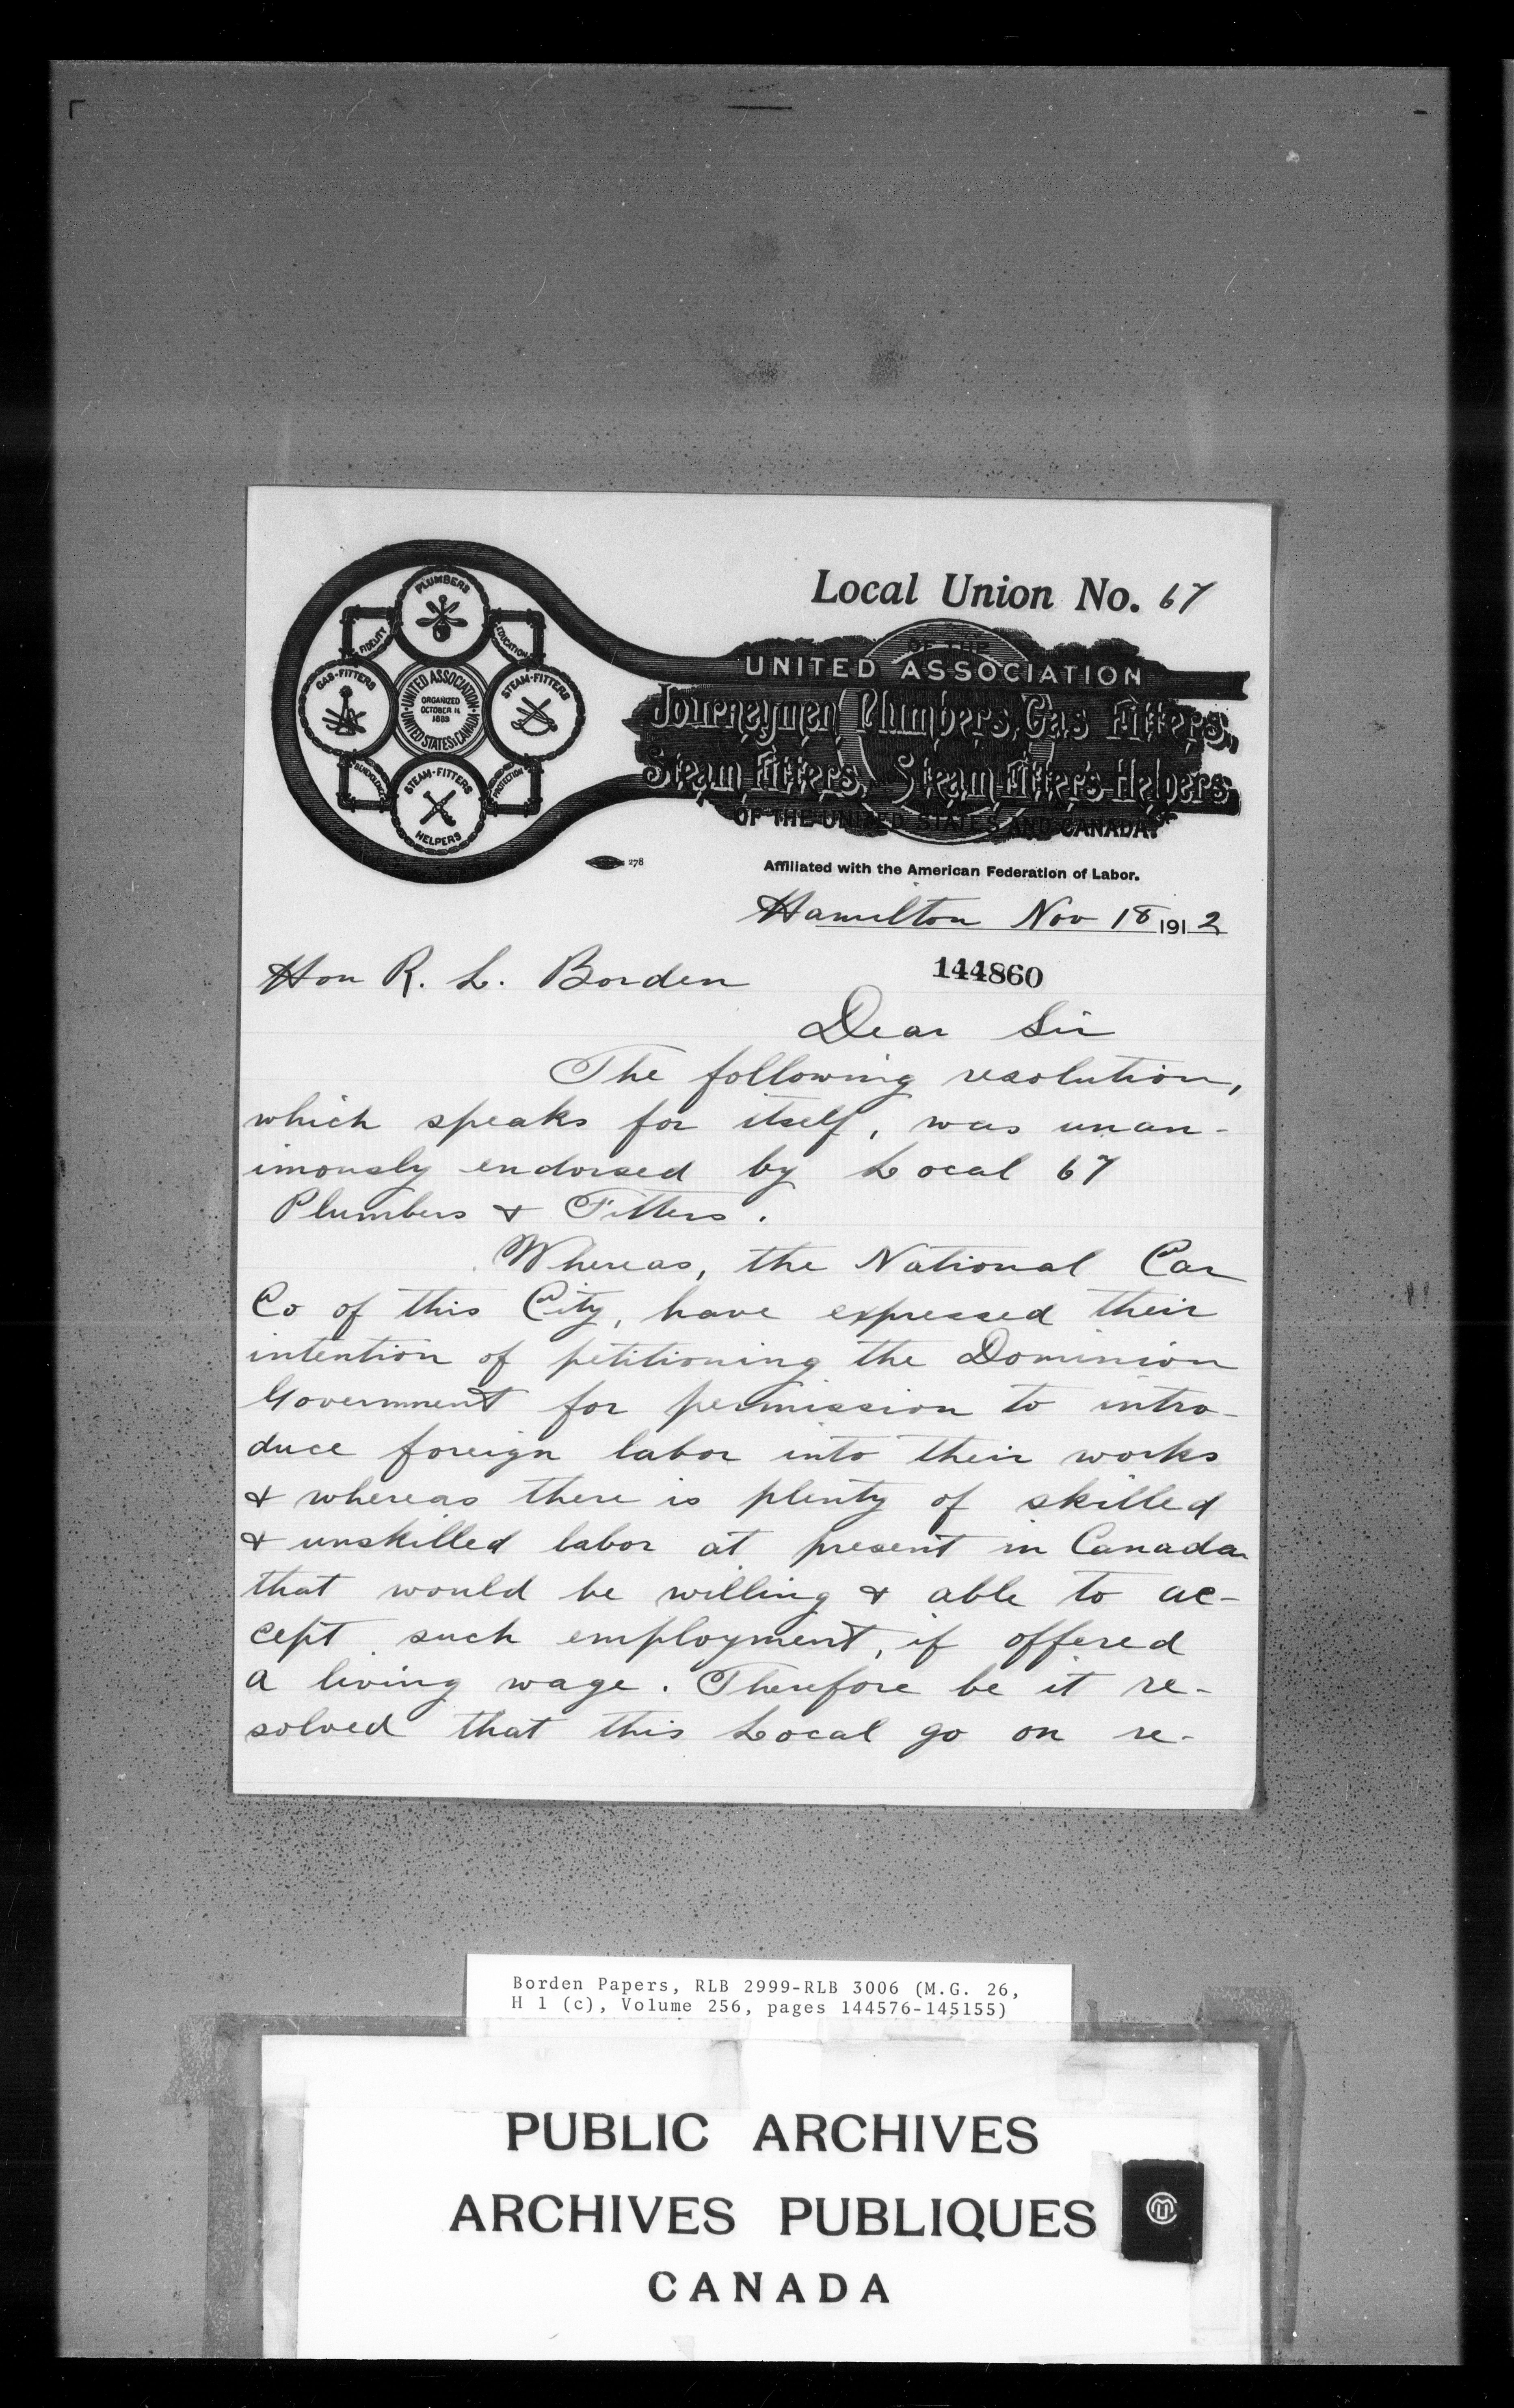 Local Union No. 67
OF THE
UNITED ASSOCIATION
Journeymen Plumbers, Gas Fitters,
Steam Fitters, Steam Fitter's Helpers
OF THE UNITED STATES AND CANADA.
PLUMBERS
FIDELITY
EDUCATION
GAS-FITTERS
UNITED ASSOCIATION
ORGANIZED
OCTOBER 11
1889
UNITED STATES & CANADA
STEAM-FITTERS
PROTECTION
STEAM-FITTERS
HELPERS
278
Affiliated with the American Federation of Labor.
Hamilton Nov 18 1912
Hon R. L. Borden
144860
Dear Sir
The following resolution,
which speaks for itself, was unan-
imously endorsed by Local 67
Plumbers & Fitters.
Whereas, the National Car
Co of this City, have expressed their
intention of petitioning the Dominion
Government for permission to intro-
duce foreign labor into their works
& whereas there is plenty of skilled
& unskilled labor at present in Canada
that would be willing & able to ac-
cept such employment, if offered
a living wage. Therefore be it re-
solved that this Local go on re-
Borden Papers, RLB 2999-RLB 3006 (M.G. 26,
H 1 (c), Volume 256, pages 144576-145155)
PUBLIC ARCHIVES
ARCHIVES PUBLIQUES
CANADA